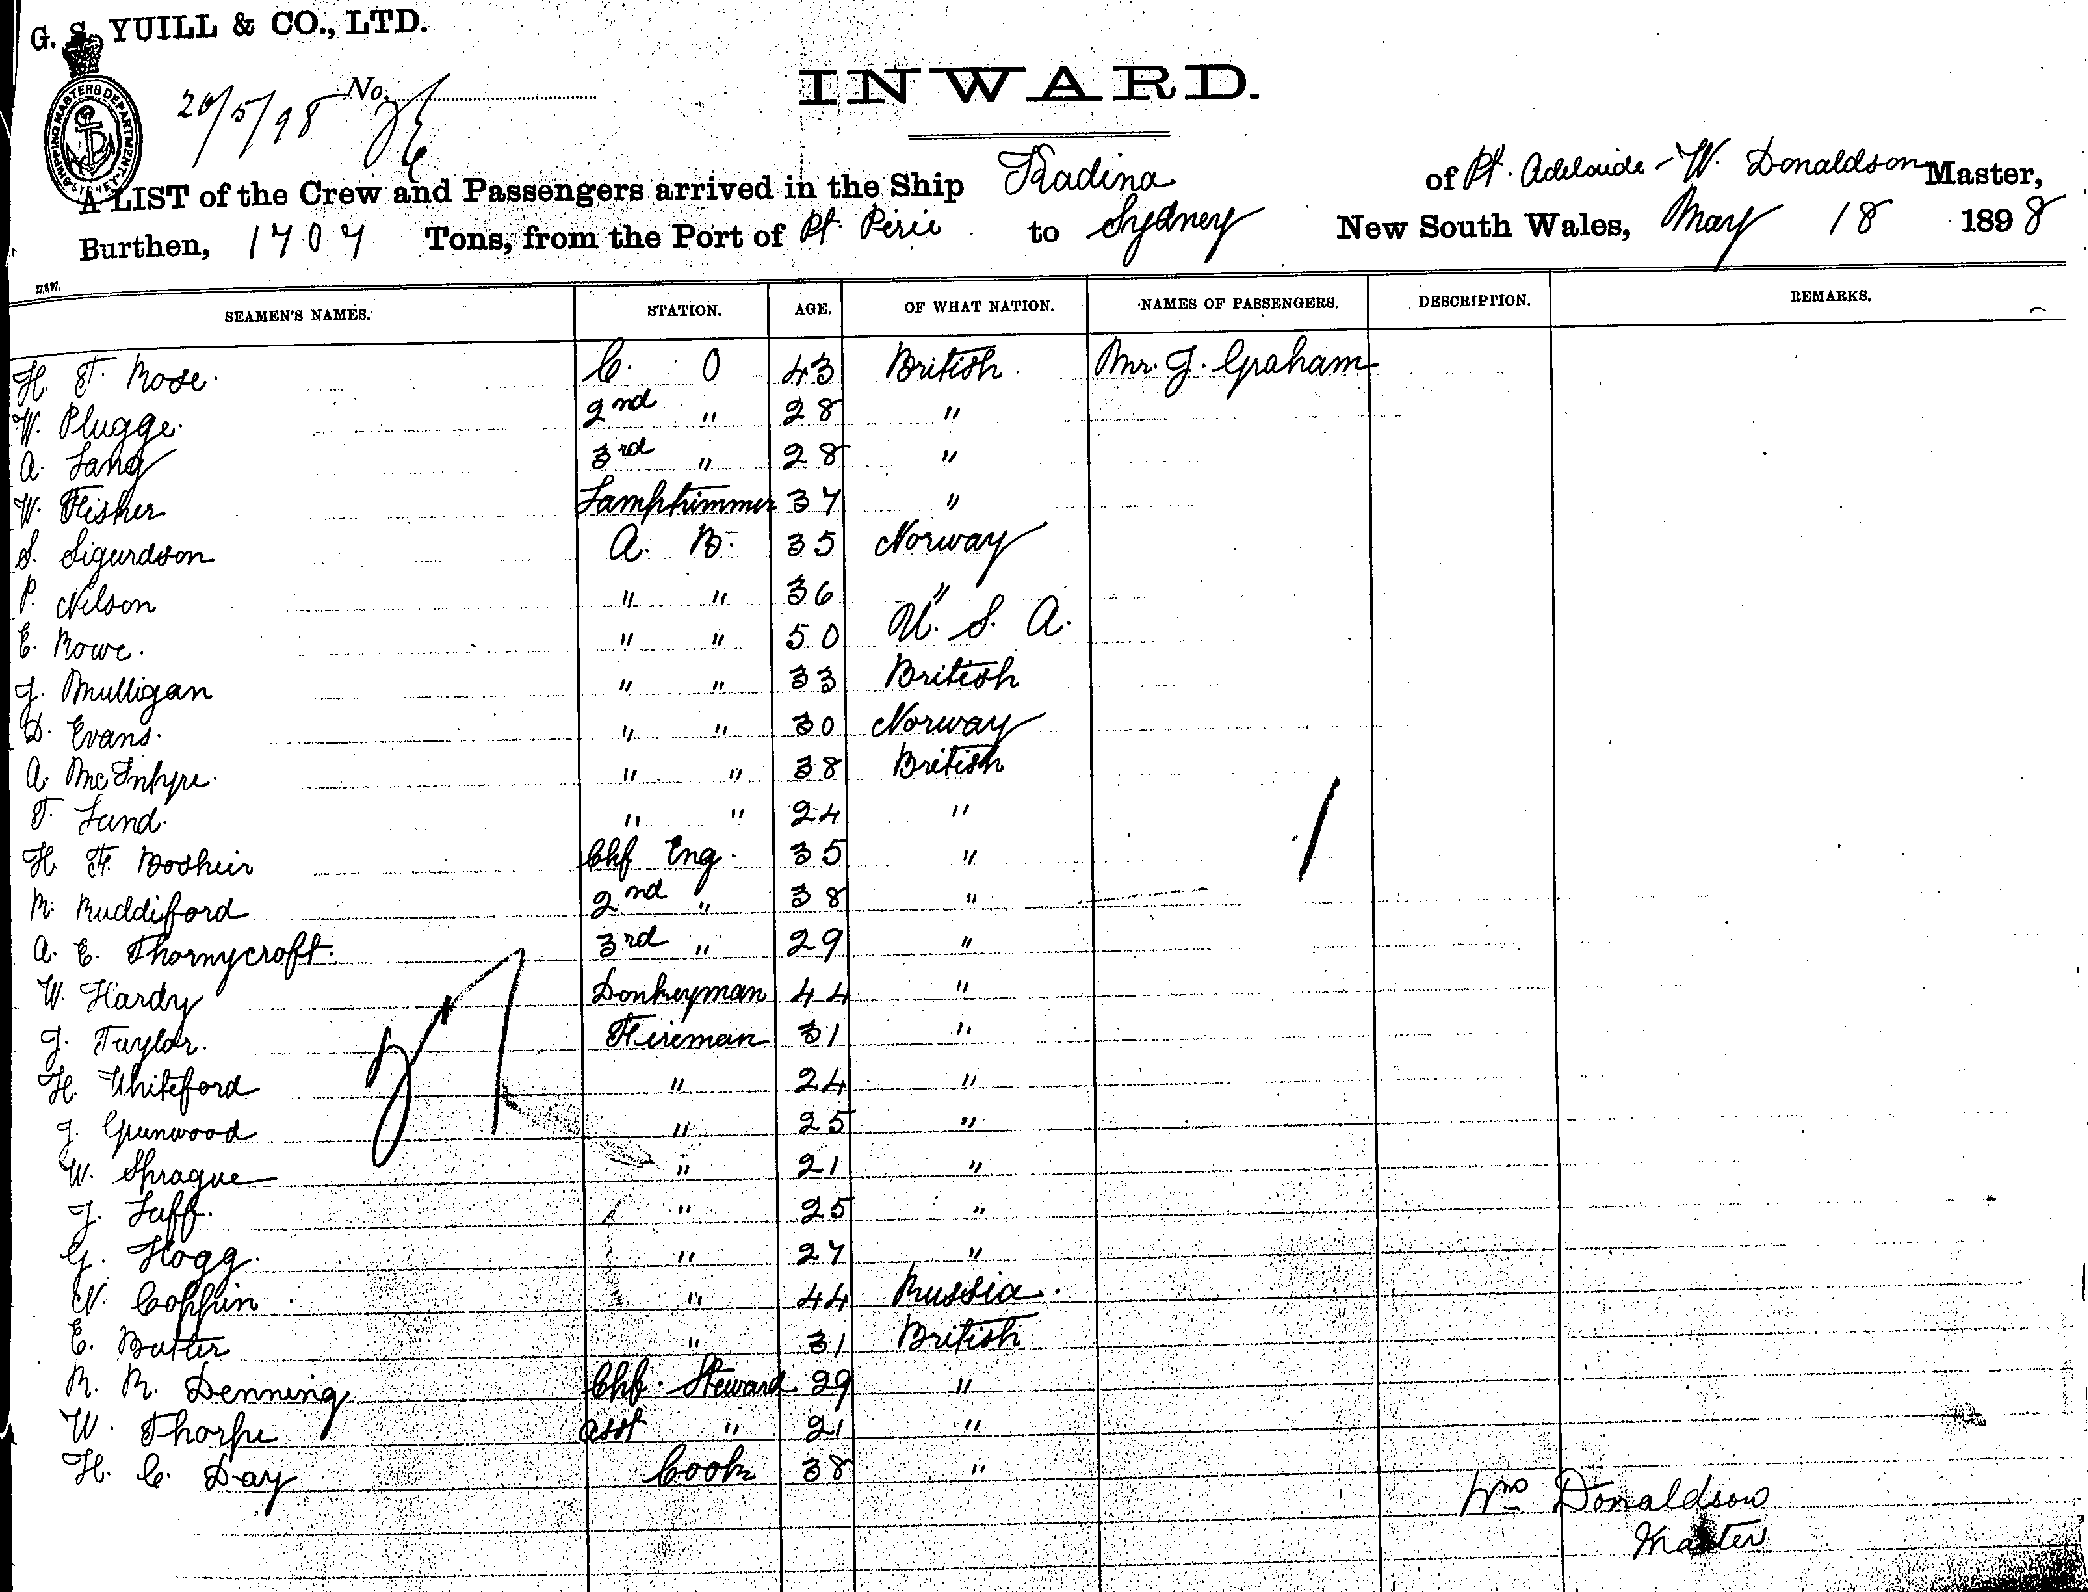 G. S. YUILL & CO., LTD.
SHIPPING MASTERS DEPARTMENT
20/5/98 No.
INWARD.
A LIST of the Crew and Passengers arrived in the Ship Kadina of Pt. Adelaide - W. Donaldson Master,
Burthen, 1707 Tons, from the Port of Pt. Pirie to Sydney New South Wales, May 18 1898
SEAMEN'S NAMES. STATION. AGE. OF WHAT NATION. NAMES OF PASSENGERS. DESCRIPTION. REMARKS.
H. T. Rose. C. O 43 British Mr. J. Graham
W. Plugge. 2nd " 28 "
A. Lang 3rd " 28 "
W. Fisher Lamptrimmer 37 "
S. Sigurdson A. B. 35 Norway
P. Nilson " " 36 "
E. Rowe. " " 50 U. S. A.
J. Mulligan " " 33 British
D. Evans. " " 30 Norway
A. McIntyre. " " 38 British
T. Lund. " " 24 "
H. F. Boshier Chf Eng. 35 "
R. Ruddiford 2nd " 38 "
A. E. Thornycroft. 3rd " 29 "
W. Hardy Donkeyman 44 "
J. Taylor. Fireman 31 "
H. Whiteford " 24 "
J. Grunwood " 25 "
W. Sprague " 21 "
J. Luff. " 25 "
G. Hogg. " 27 "
N. Coppin " 44 Russia.
E. Butler " 31 British
R. R. Denning Chf. Steward 29 "
W. Thorpe asst " 21 "
H. C. Day Cook 38 "
27
1
Wm Donaldson
Master